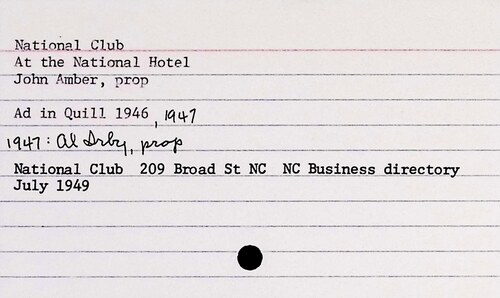 National Club
At the National Hotel
John Amber, prop
Ad in Quill 1946, 1947
1947: Al Irby, prop
National Club 209 Broad St NC NC Business directory
July 1949